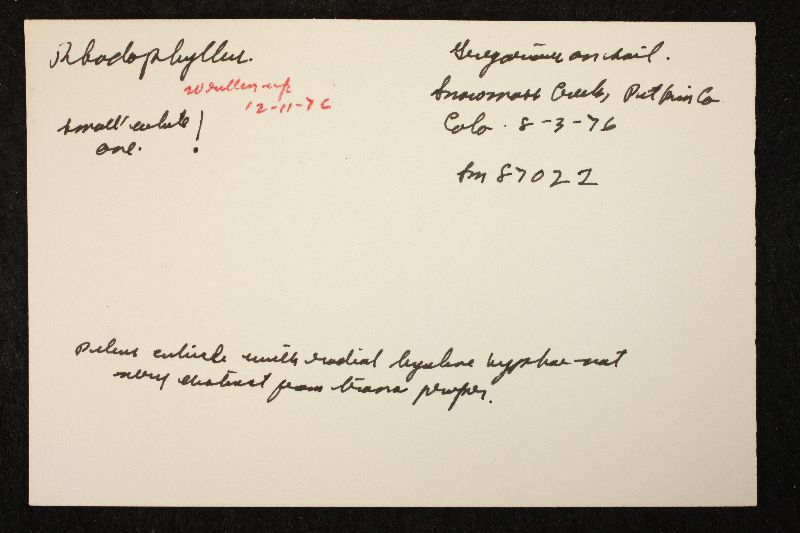 Rhodophyllus.
Written up
12-11-76
small white
one. !
Gregarious on soil.
Snowmass Creek, Pitkin Co
Colo. 8-3-76
Sm 87022
Pileus cuticle with radial hyaline hyphae-not
very distinct from trama proper.